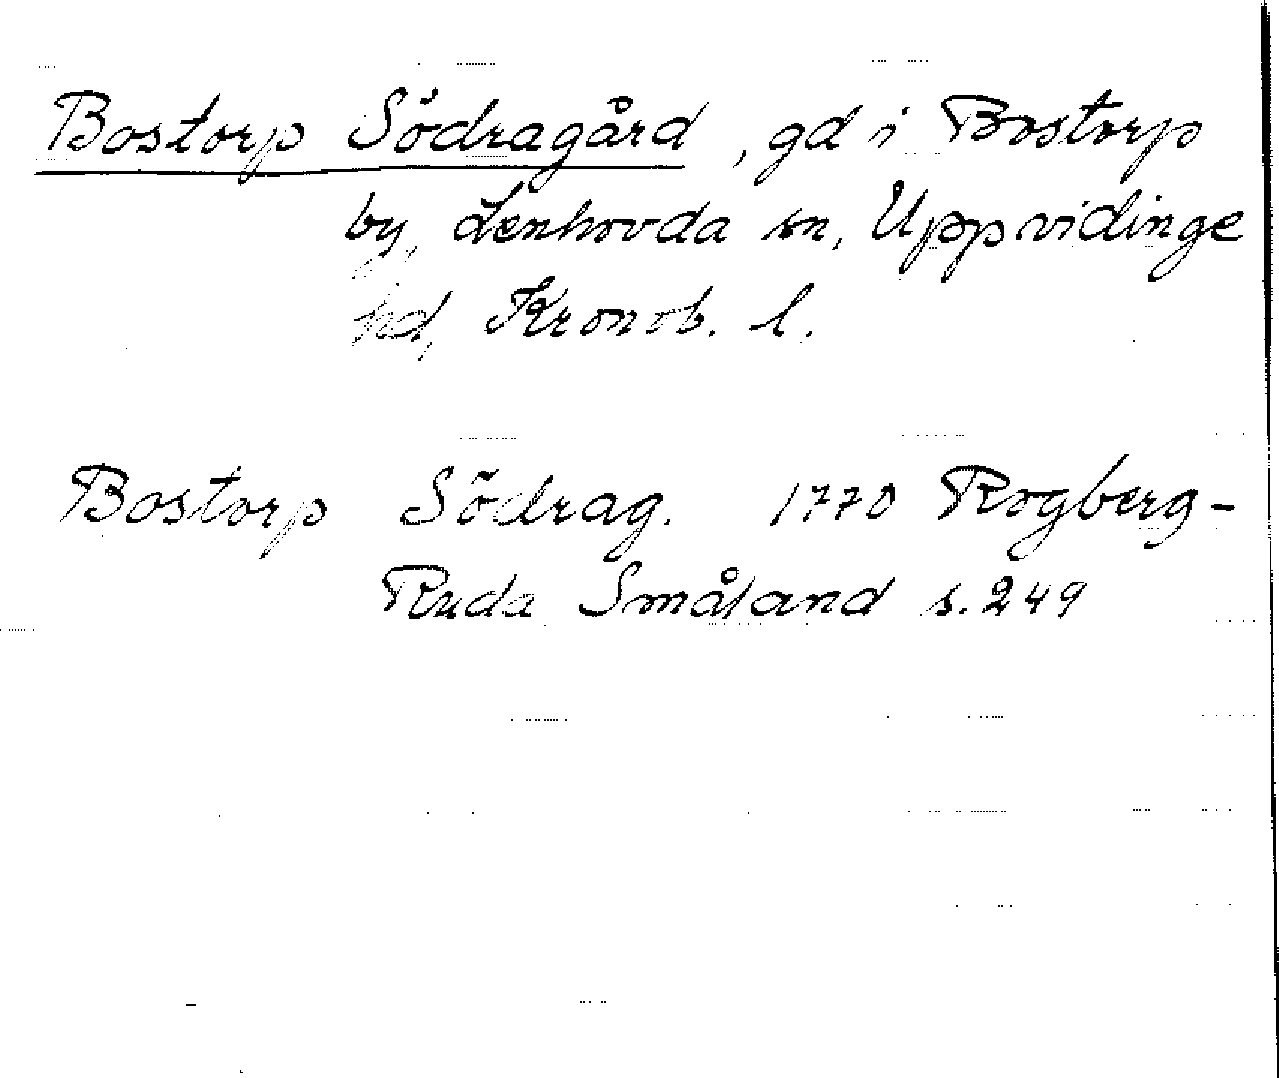 Bostorp Södragård, gd i Bostorp
by, Lenhovda sn, Uppvidinge
hd, Kronob. l.
Bostorp Södrag. 1770 Rogberg-
Ruda Småland s. 249